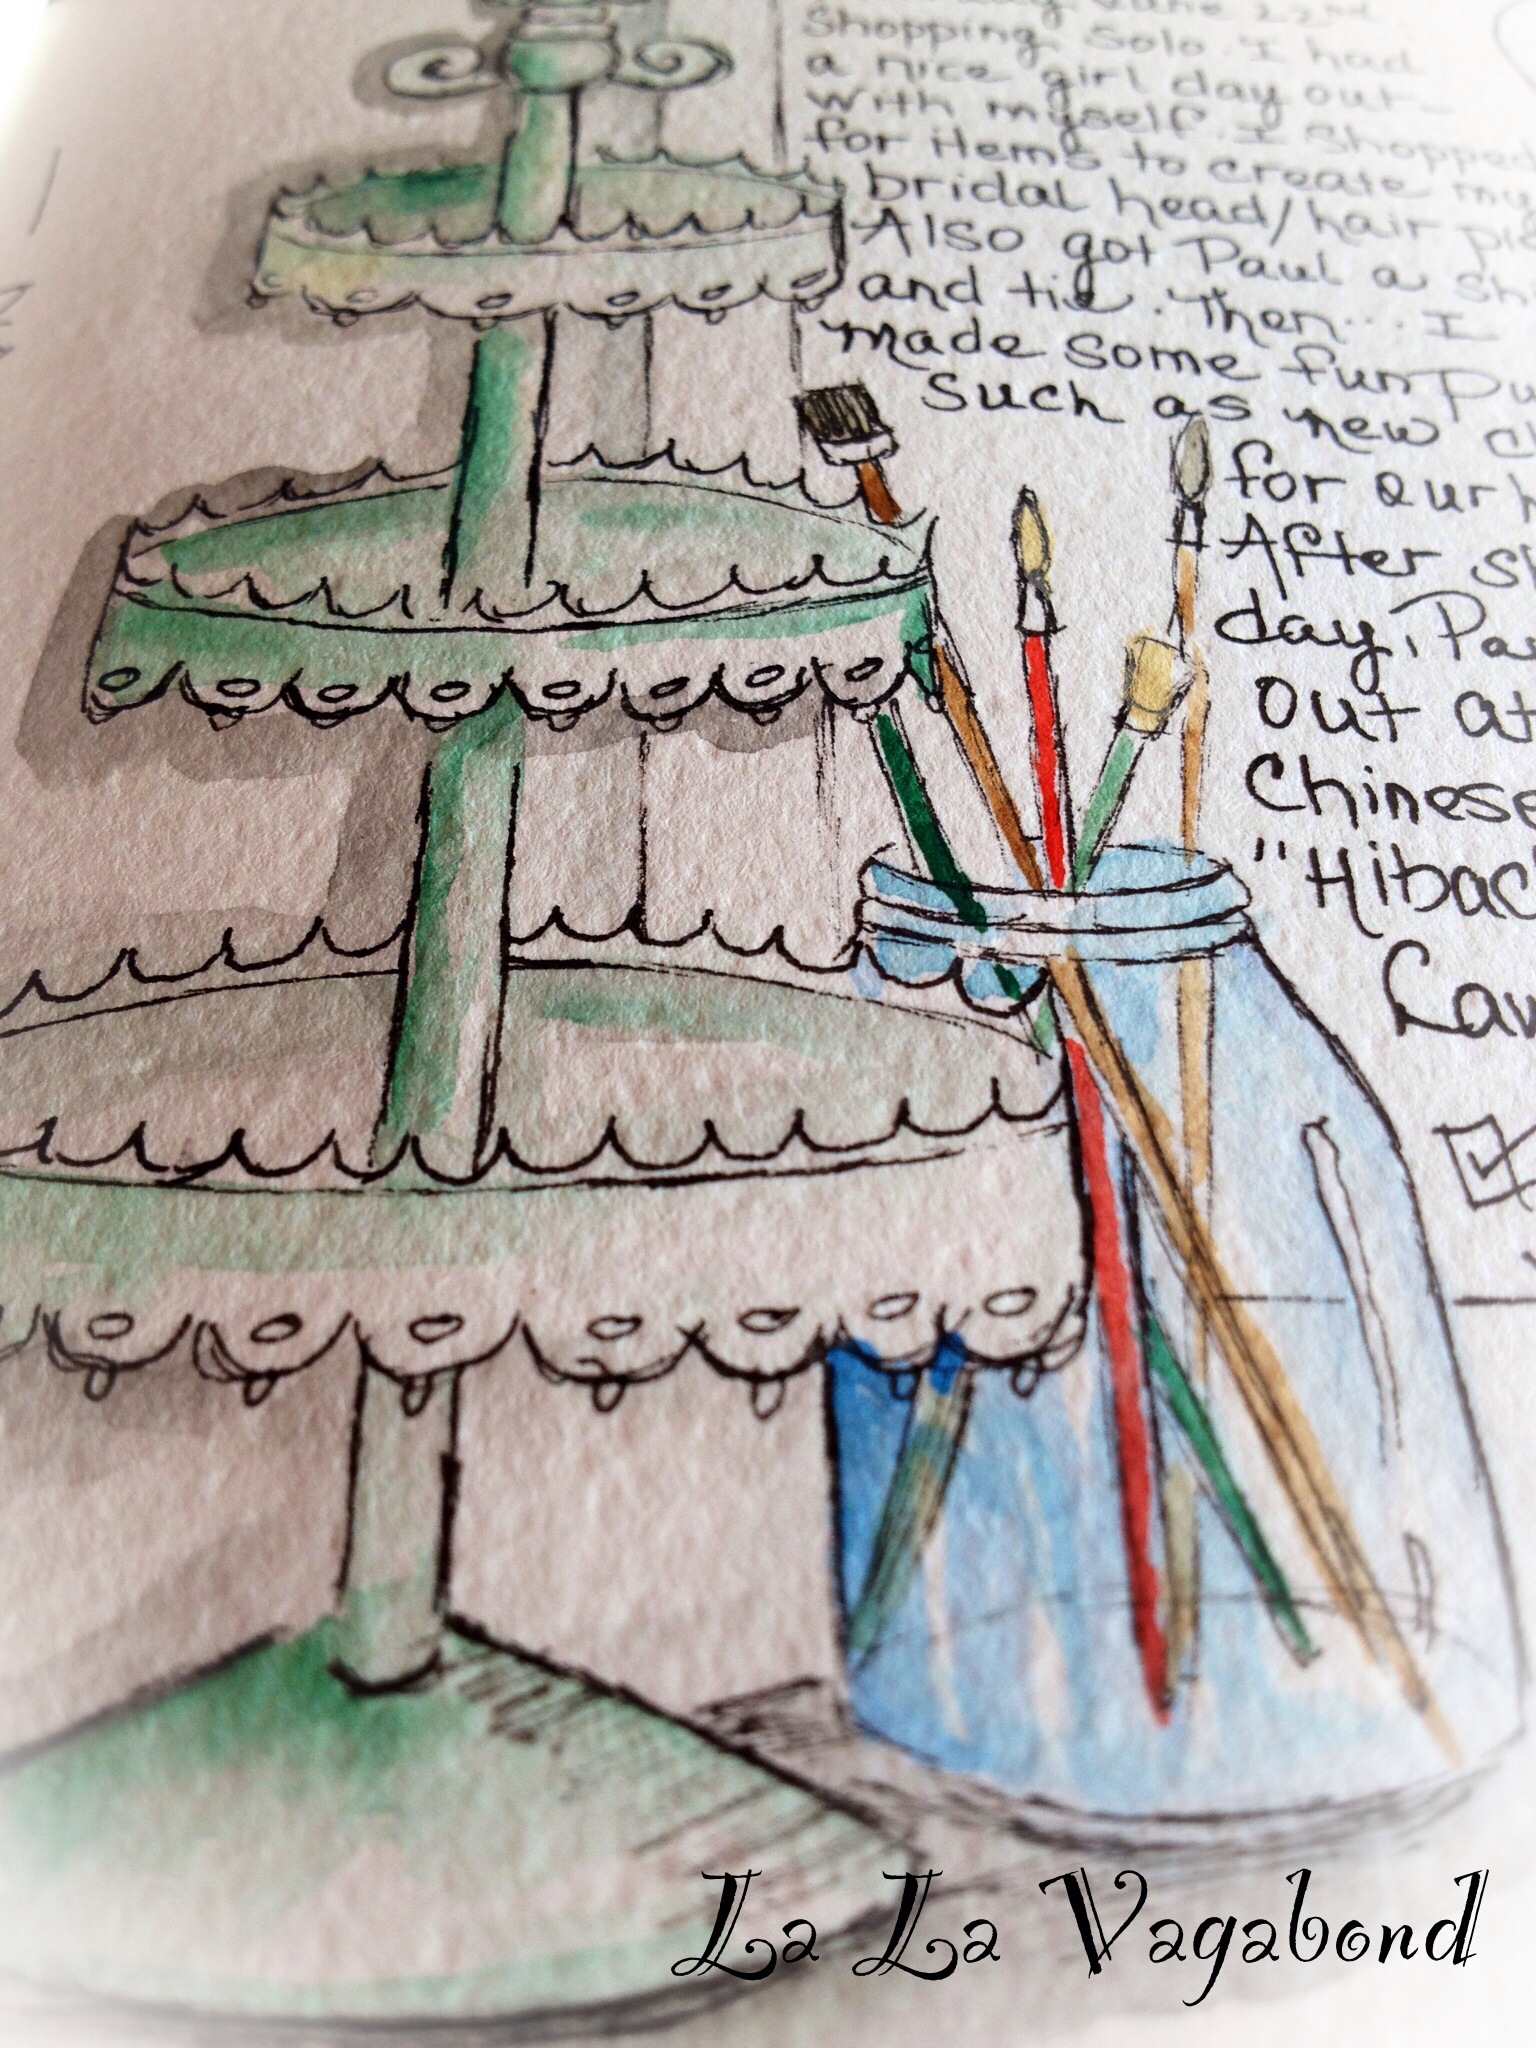 June 22nd
Shopping Solo. I had
a nice girl day out-
with myself. I Shopped
for items to create my
bridal head/hair
Also got Paul a
and tie. Then... I
made some fun
Such as new
for our
After
day,
out at
Chinese
La La Vagabond